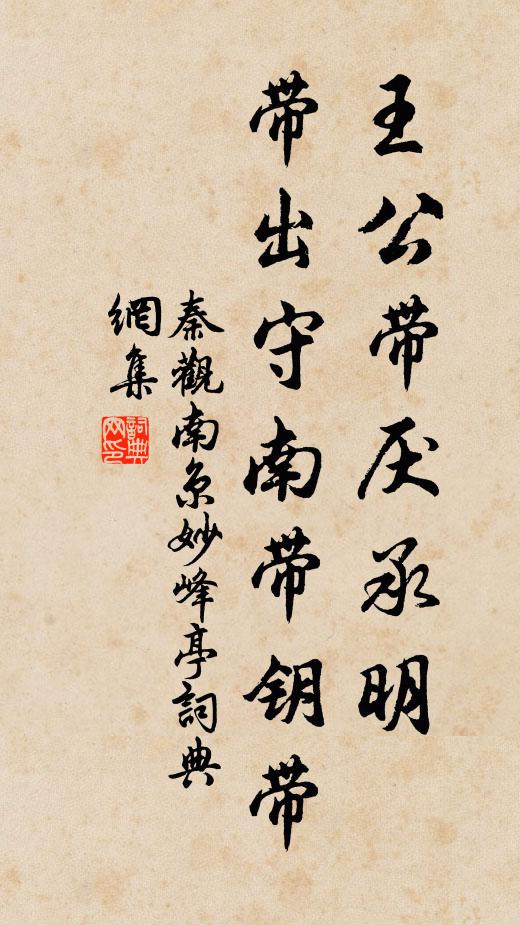 王公带厌承明
带出守南带钥带
秦觀南京妙峰亭詞典
網集
詞典網印